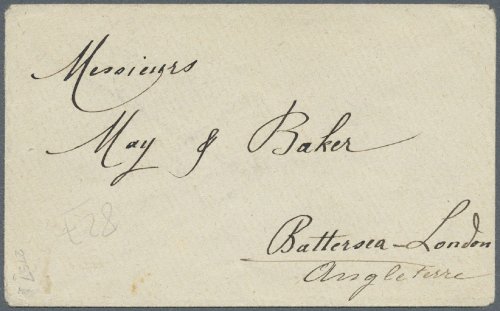 Messieurs
May & Baker
Battersea - London
Angleterre
£28